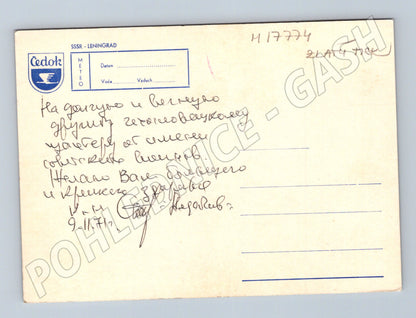 SSSR - LENINGRAD
Čedok
METEO
Datum
Voda Vzduch
H 17774
ZLATÁ
На долгую и вечную
дружбу чехословацкому
шахтёру от имени
советских
Желаю Вам большого
и крепкого здоровья
9.II.71г.
POHLEDNICE - GASH